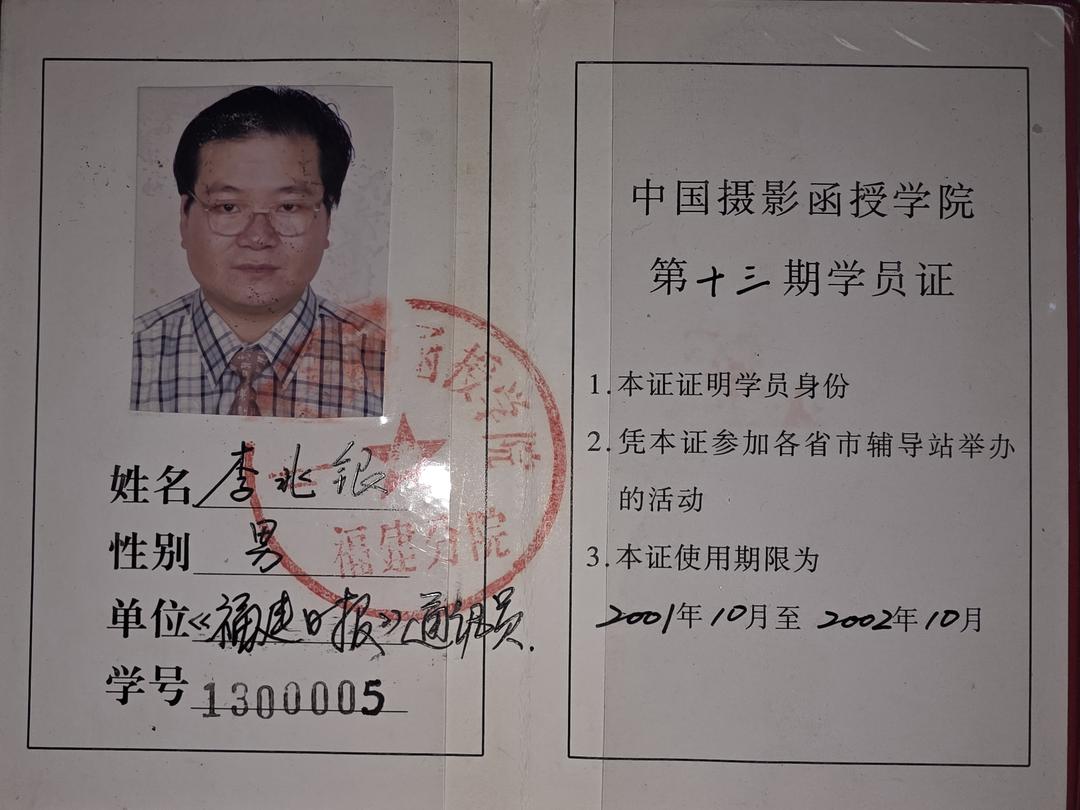 姓名 李兆银
性别 男
单位 《福建日报》通讯员.
学号 1300005
函授学院
福建分院
中国摄影函授学院
第十三期学员证
1.本证证明学员身份
2.凭本证参加各省市辅导站举办
的活动
3.本证使用期限为
2001年10月至2002年10月